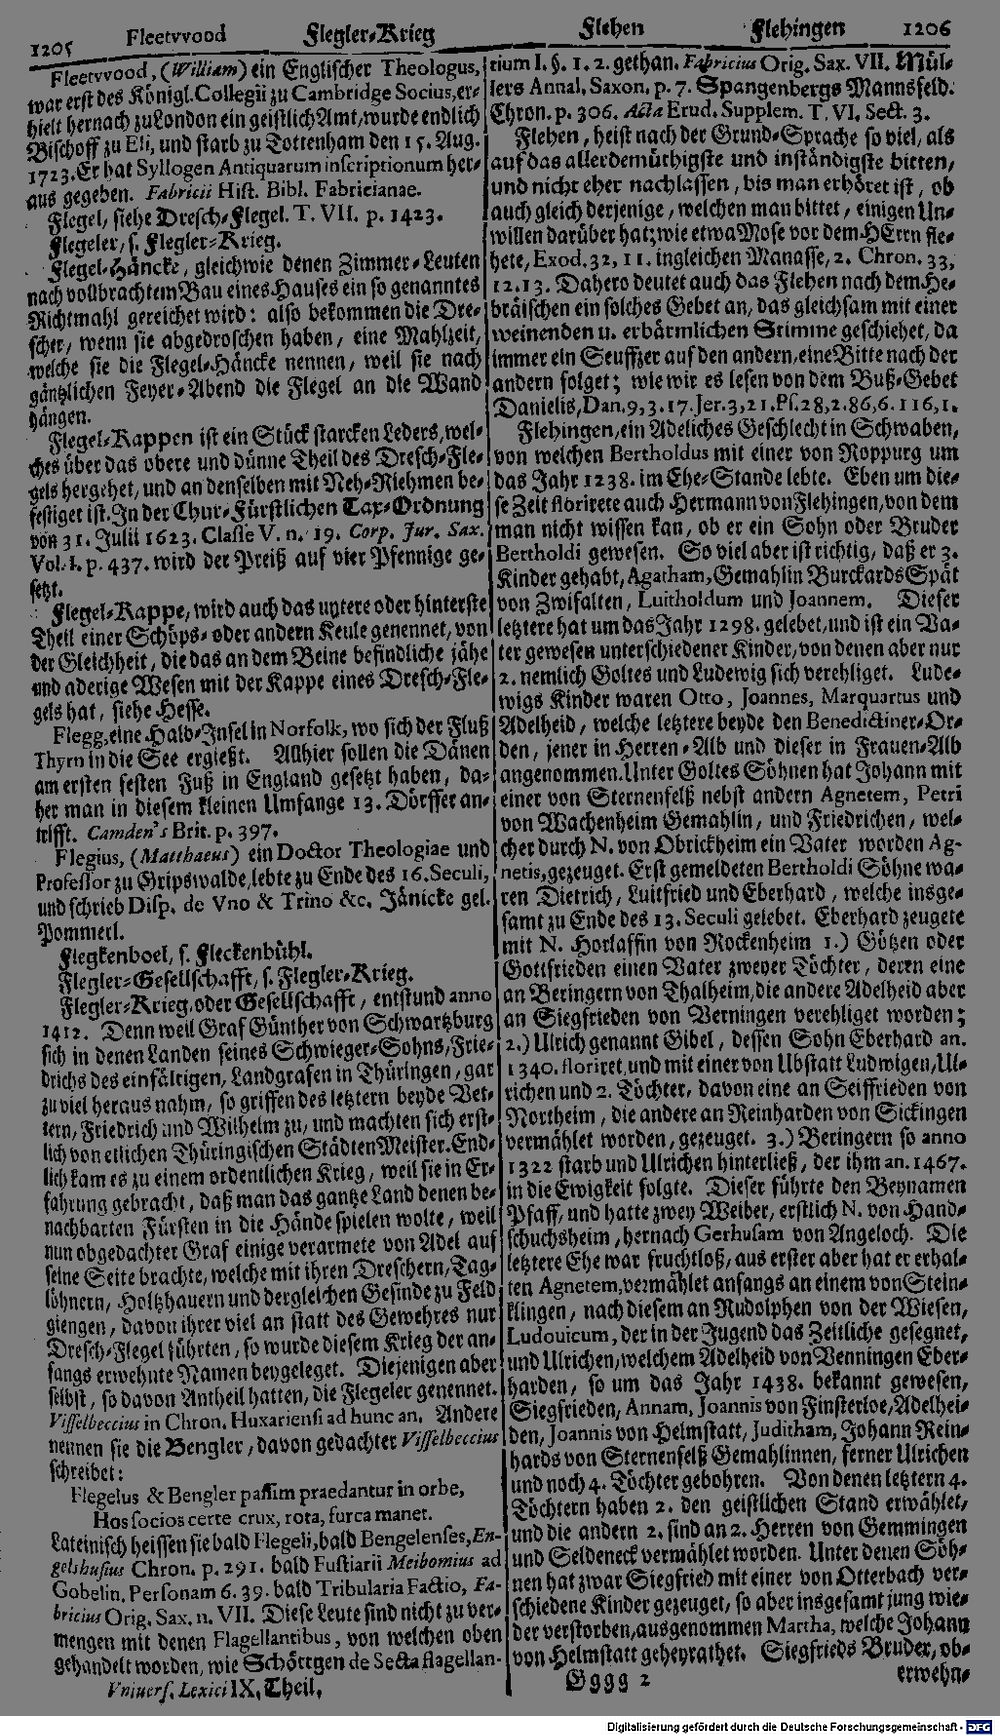 1205 Fleetvvood Flegler-Krieg Flehen Flehingen 1206
Fleetvvood, (William) ein Englischer Theologus,
war erst des Königl. Collegii zu Cambridge Socius, er-
hielt hernach zu London ein geistlich Amt, wurde endlich
Bischoff zu Eli, und starb zu Tottenham den 15. Aug.
1723. Er hat Syllogen Antiquarum inscriptionum her-
aus gegeben. Fabricii Hist. Bibl. Fabricianae.
Flegel, siehe Dresch-Flegel. T. VII. p. 1423.
Flegeler, s. Flegler-Krieg.
Flegel-Häncke, gleichwie denen Zimmer-Leuten
nach vollbrachtem Bau eines Hauses ein so genanntes
Richtmahl gereichet wird: also bekommen die Dre-
scher, wenn sie abgedroschen haben, eine Mahlzeit,
welche sie die Flegel-Häncke nennen, weil sie nach
gäntzlichen Feyer-Abend die Flegel an die Wand
hängen.
Flegel-Kappen ist ein Stück starcken Leders, wel-
ches über das obere und dünne Theil des Dresch-Fle-
gels hergehet, und an denselben mit Neh-Riehmen be-
festiget ist. In der Chur-Fürstlichen Tax-Ordnung
von 31. Julii 1623. Classe V. n. 19. Corp. Jur. Sax.
Vol. I. p. 437. wird der Preiß auf vier Pfennige ge-
setzt.
Flegel-Kappe, wird auch das untere oder hinterste
Theil einer Schöps- oder andern Keule genennet, von
der Gleichheit, die das an dem Beine befindliche jähe
und aderige Wesen mit der Kappe eines Dresch-Fle-
gels hat, siehe Hesse.
Flegg, eine Halb-Insel in Norfolk, wo sich der Fluß
Thyrn in die See ergießt. Allhier sollen die Dänen
am ersten festen Fuß in England gesetzt haben, da-
her man in diesem kleinen Umfange 13. Dörffer an-
trifft. Camden's Brit. p. 397.
Flegius, (Matthaeus) ein Doctor Theologiae und
Professor zu Gripswalde, lebte zu Ende des 16. Seculi,
und schrieb Disp. de Vno & Trino &c. Jänicke gel.
Pommerl.
Flegkenboel, s. Fleckenbühl.
Flegler-Gesellschafft, s. Flegler-Krieg.
Flegler-Krieg, oder Gesellschafft, entstund anno
1412. Denn weil Graf Günther von Schwartzburg
sich in denen Landen seines Schwieger-Sohns, Frie-
drichs des einfältigen, Landgrafen in Thüringen, gar
zu viel heraus nahm, so griffen des letztern beyde Vet-
tern, Friedrich und Wilhelm zu, und machten sich erst-
lich von etlichen Thüringischen Städten Meister. End-
lich kam es zu einem ordentlichen Krieg, weil sie in Er-
fahrung gebracht, daß man das gantze Land denen be-
nachbarten Fürsten in die Hände spielen wolte, weil
nun obgedachter Graf einige verarmete von Adel auf
seine Seite brachte, welche mit ihren Dreschern, Tag-
löhnern, Holtzhauern und dergleichen Gesinde zu Feld
giengen, davon ihrer viel an statt des Gewehres nur
Dresch-Flegel führten, so wurde diesem Krieg der an-
fangs erwehnte Namen beygeleget. Diejenigen aber
selbst, so davon Antheil hatten, die Flegeler genennet.
Visselbeccius in Chron. Huxariensi ad hunc an. Andere
nennen sie die Bengler, davon gedachter Visselbeccius
schreibet:
Flegelus & Bengler passim praedantur in orbe,
Hos socios certe crux, rota, furca manet.
Lateinisch heissen sie bald Flegeli, bald Bengelenses, En-
gelshusius Chron. p. 291. bald Fustiarii Meibomius ad
Gobelin. Personam 6. 39. bald Tribularia Factio, Fa-
bricius Orig. Sax. n. VII. Diese Leute sind nicht zu ver-
mengen mit denen Flagellantibus, von welchen oben
gehandelt worden, wie Schöttgen de Secta flagellan-
Vniuers. Lexici IX. Theil.
tium I. §. 1. 2. gethan. Fabricius Orig. Sax. VII. Mül-
lers Annal. Saxon. p. 7. Spangenbergs Mannsfeld.
Chron. p. 306. Acta Erud. Supplem. T. VI. Sect. 3.
Flehen, heist nach der Grund-Sprache so viel, als
auf das allerdemüthigste und inständigste bitten,
und nicht eher nachlassen, bis man erhöret ist, ob
auch gleich derjenige, welchen man bittet, einigen Un-
willen darüber hat; wie etwa Mose vor dem HErrn fle-
hete, Exod. 32, 11. ingleichen Manasse, 2. Chron. 33,
12. 13. Dahero deutet auch das Flehen nach dem He-
bräischen ein solches Gebet an, das gleichsam mit einer
weinenden u. erbärmlichen Stimme geschiehet, da
immer ein Seuffzer auf den andern, eine Bitte nach der
andern folget; wie wir es lesen von dem Buß-Gebet
Danielis, Dan. 9, 3. 17. Jer. 3, 21. Ps. 28, 2. 86, 6. 116, 1.
Flehingen, ein Adeliches Geschlecht in Schwaben,
von welchen Bertholdus mit einer von Roppurg um
das Jahr 1238. im Ehe-Stande lebte. Eben um die-
se Zeit florirete auch Hermann von Flehingen, von dem
man nicht wissen kan, ob er ein Sohn oder Bruder
Bertholdi gewesen. So viel aber ist richtig, daß er 3.
Kinder gehabt, Agatham, Gemahlin Burckards Spät
von Zwifalten, Luitholdum und Joannem. Dieser
letztere hat um das Jahr 1298. gelebet, und ist ein Va-
ter gewesen unterschiedener Kinder, von denen aber nur
2. nemlich Goltes und Ludewig sich verehliget. Lude-
wigs Kinder waren Otto, Joannes, Marquartus und
Adelheid, welche letztere beyde den Benedictiner-Or-
den, jener in Herren-Alb und dieser in Frauen-Alb
angenommen. Unter Goltes Söhnen hat Johann mit
einer von Sternenfelß nebst andern Agnetem, Petri
von Wachenheim Gemahlin, und Friedrichen, wel-
cher durch N. von Obrickheim ein Vater worden Ag-
netis, gezeuget. Erst gemeldeten Bertholdi Söhne wa-
ren Dietrich, Luitfried und Eberhard, welche insge-
samt zu Ende des 13. Seculi gelebet. Eberhard zeugete
mit N. Horlaffin von Rockenheim 1.) Götzen oder
Gottfrieden einen Vater zweyer Töchter, deren eine
an Beringern von Thalheim, die andere Adelheid aber
an Siegfrieden von Verningen verehliget worden;
2.) Ulrich genannt Gibel, dessen Sohn Eberhard an.
1340. floriret, und mit einer von Ubstatt Ludwigen, Ul-
richen und 2. Töchter, davon eine an Seiffrieden von
Northeim, die andere an Reinharden von Sickingen
vermählet worden, gezeuget. 3.) Beringern so anno
1322 starb und Ulrichen hinterließ, der ihm an. 1467.
in die Ewigkeit folgte. Dieser führte den Beynamen
Pfaff, und hatte zwey Weiber, erstlich N. von Hand-
schuchsheim, hernach Gerhusam von Angeloch. Die
letztere Ehe war fruchtloß, aus erster aber hat er erhal-
ten Agnetem, vermählet anfangs an einem von Stein-
klingen, nach diesem an Rudolphen von der Wiesen,
Ludouicum, der in der Jugend das Zeitliche gesegnet,
und Ulrichen, welchem Adelheid von Venningen Eber-
harden, so um das Jahr 1438. bekannt gewesen,
Siegfrieden, Annam, Joannis von Finsterloe, Adelhei-
den, Joannis von Helmstatt, Juditham, Johann Rein-
hards von Sternenfelß Gemahlinnen, ferner Ulrichen
und noch 4. Töchter gebohren. Von denen letztern 4.
Töchtern haben 2. den geistlichen Stand erwählet,
und die andern 2. sind an 2. Herren von Gemmingen
und Seldeneck vermählet worden. Unter denen Söh-
nen hat zwar Siegfried mit einer von Otterbach ver-
schiedene Kinder gezeuget, so aber insgesamt jung wie-
der verstorben, ausgenommen Martha, welche Johann
von Helmstatt geheyrathet. Siegfrieds Bruder, ob-
Gggg 2 erwehn-
Digitalisierung gefördert durch die Deutsche Forschungsgemeinschaft - DFG